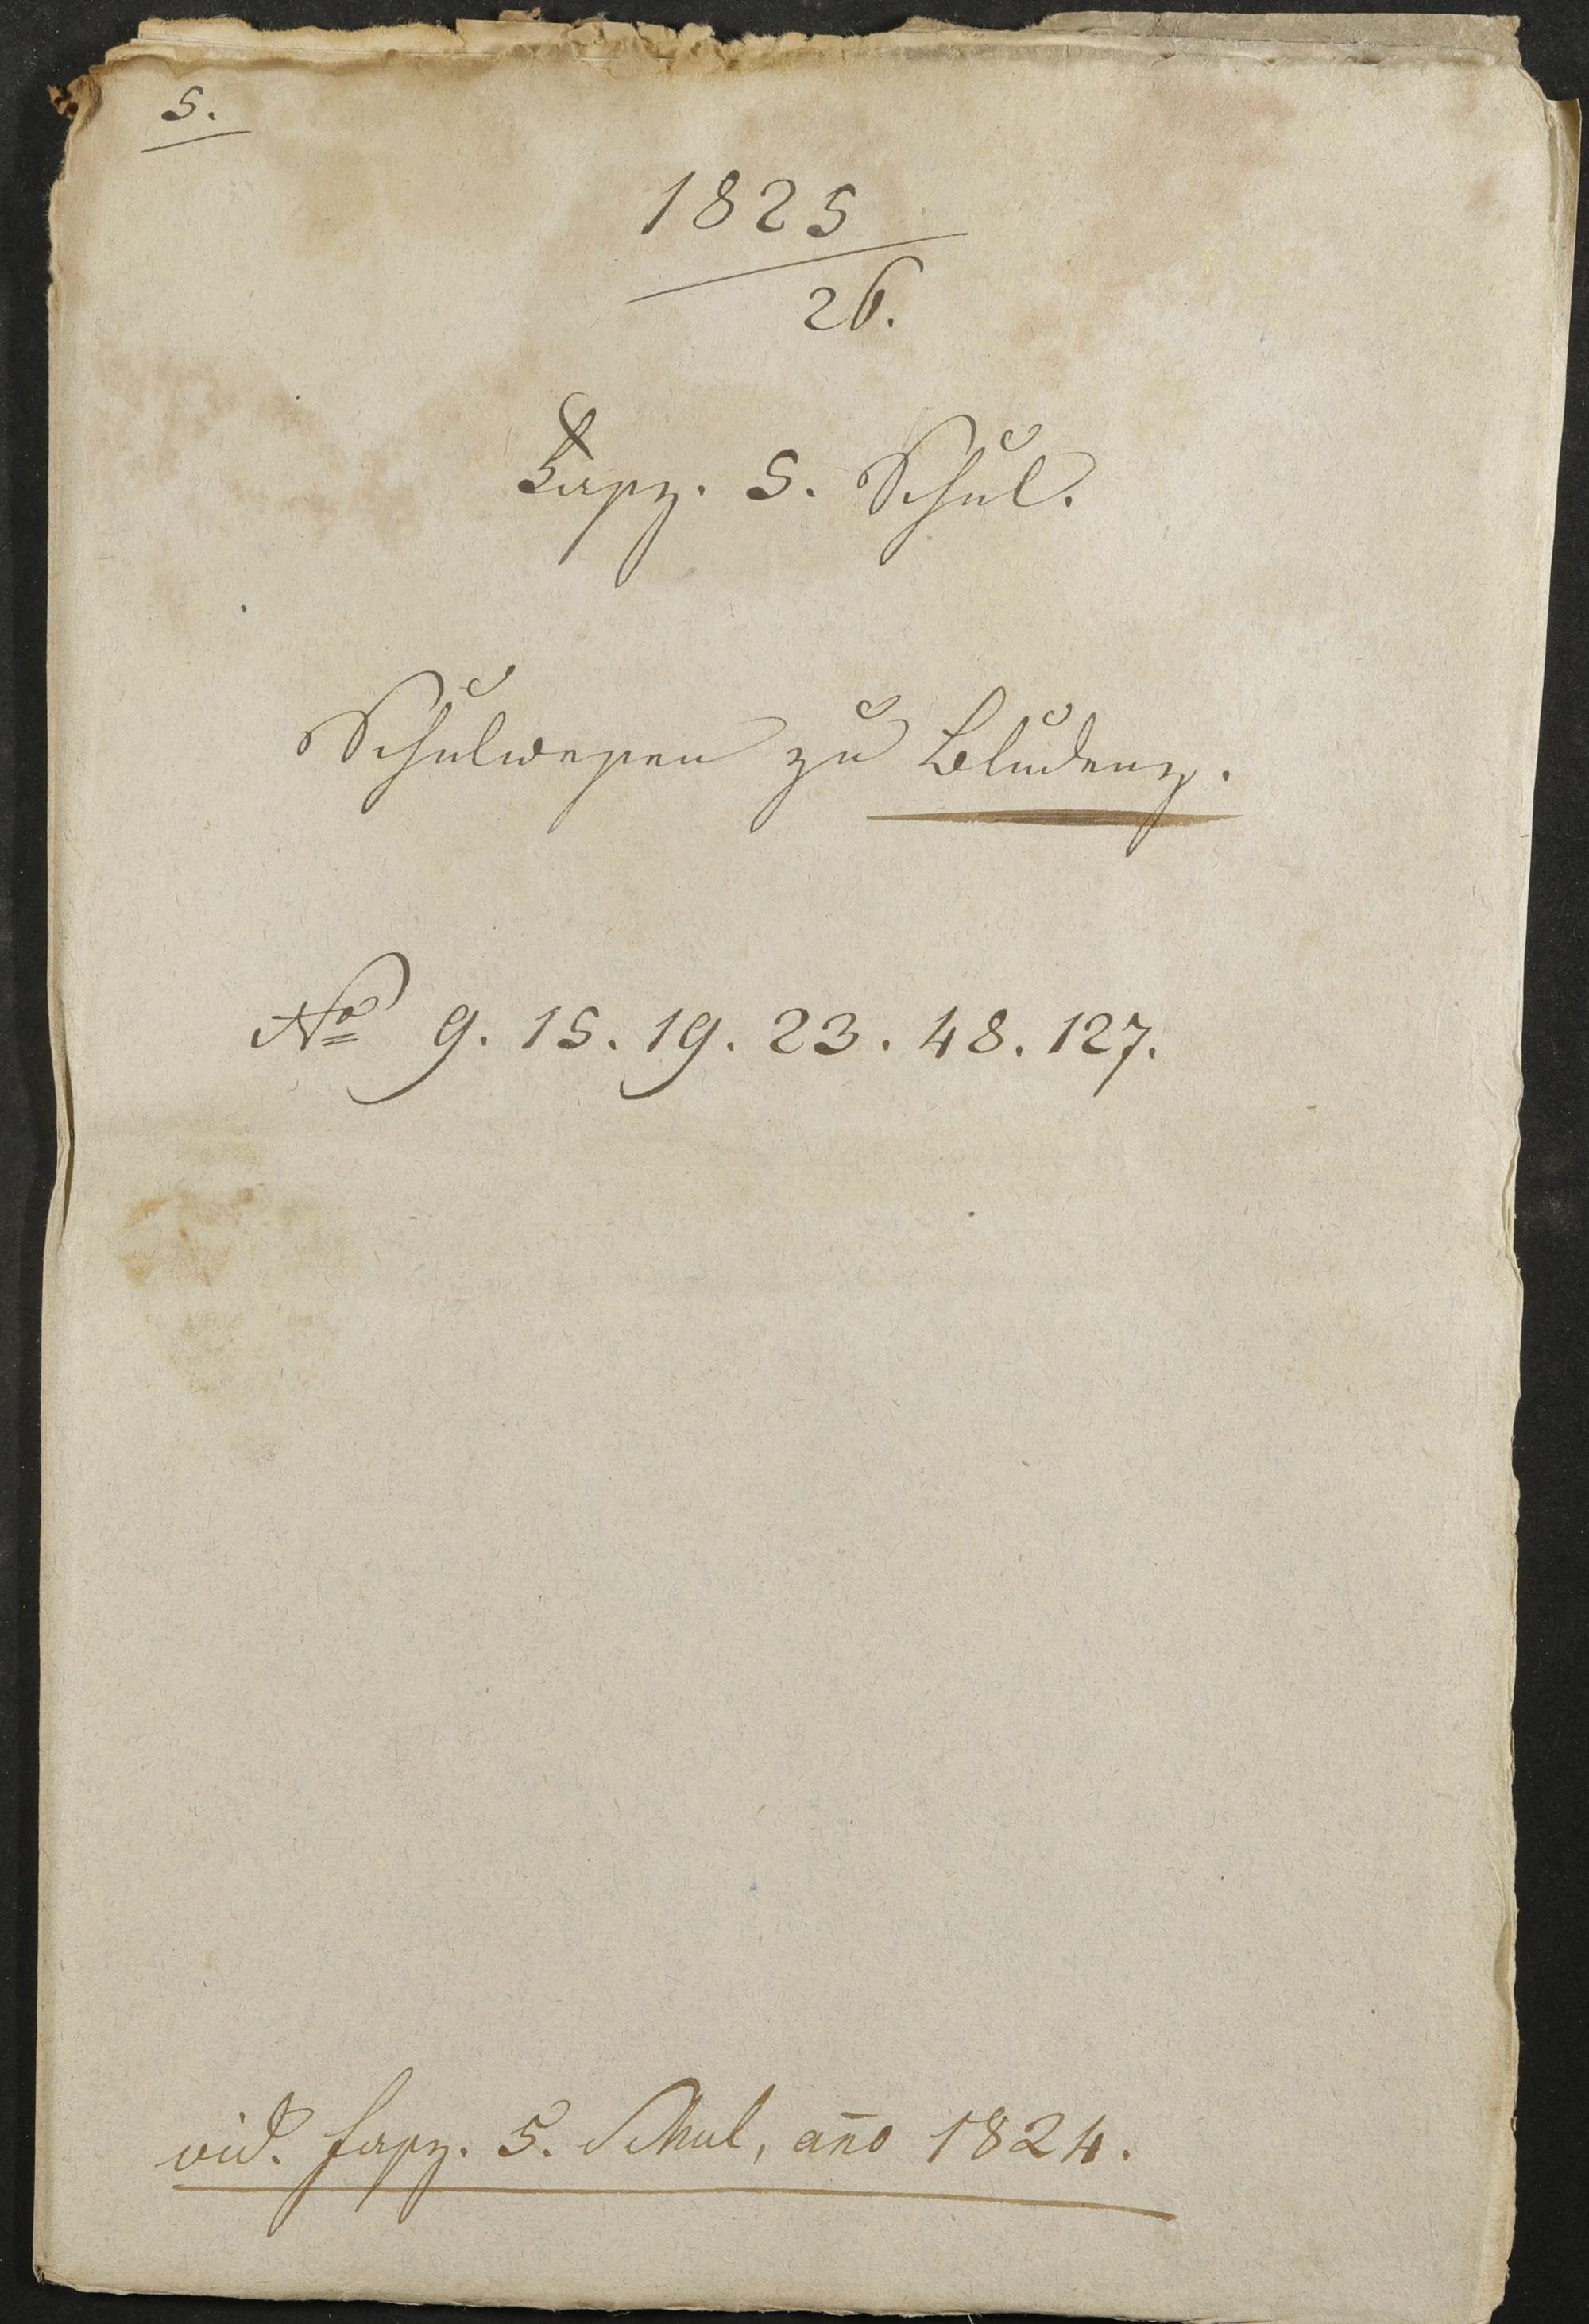 5.
1825
26.
Fasz. 5. Schul.
Schulwesen zu Bludenz.
No 9. 15. 19. 23. 48. 127.
vid. fasz. 5. Schul, año 1824.